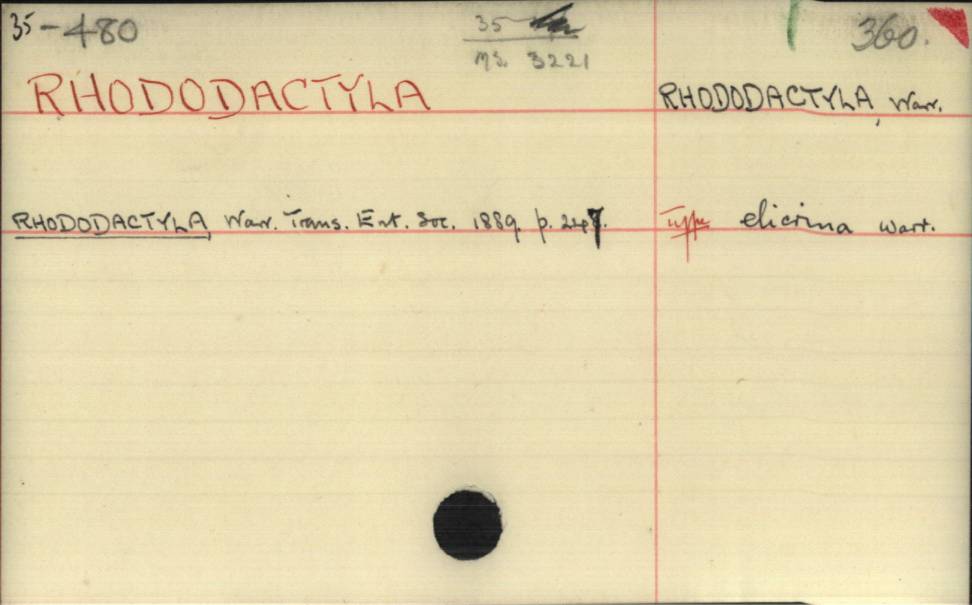 35-480
35
MS. 3221
360.
RHODODACTYLA
RHODODACTYLA, Warr.
RHODODACTYLA, Warr. Trans. Ent. Soc. 1889. p. 247.
Type elicrina Warr.